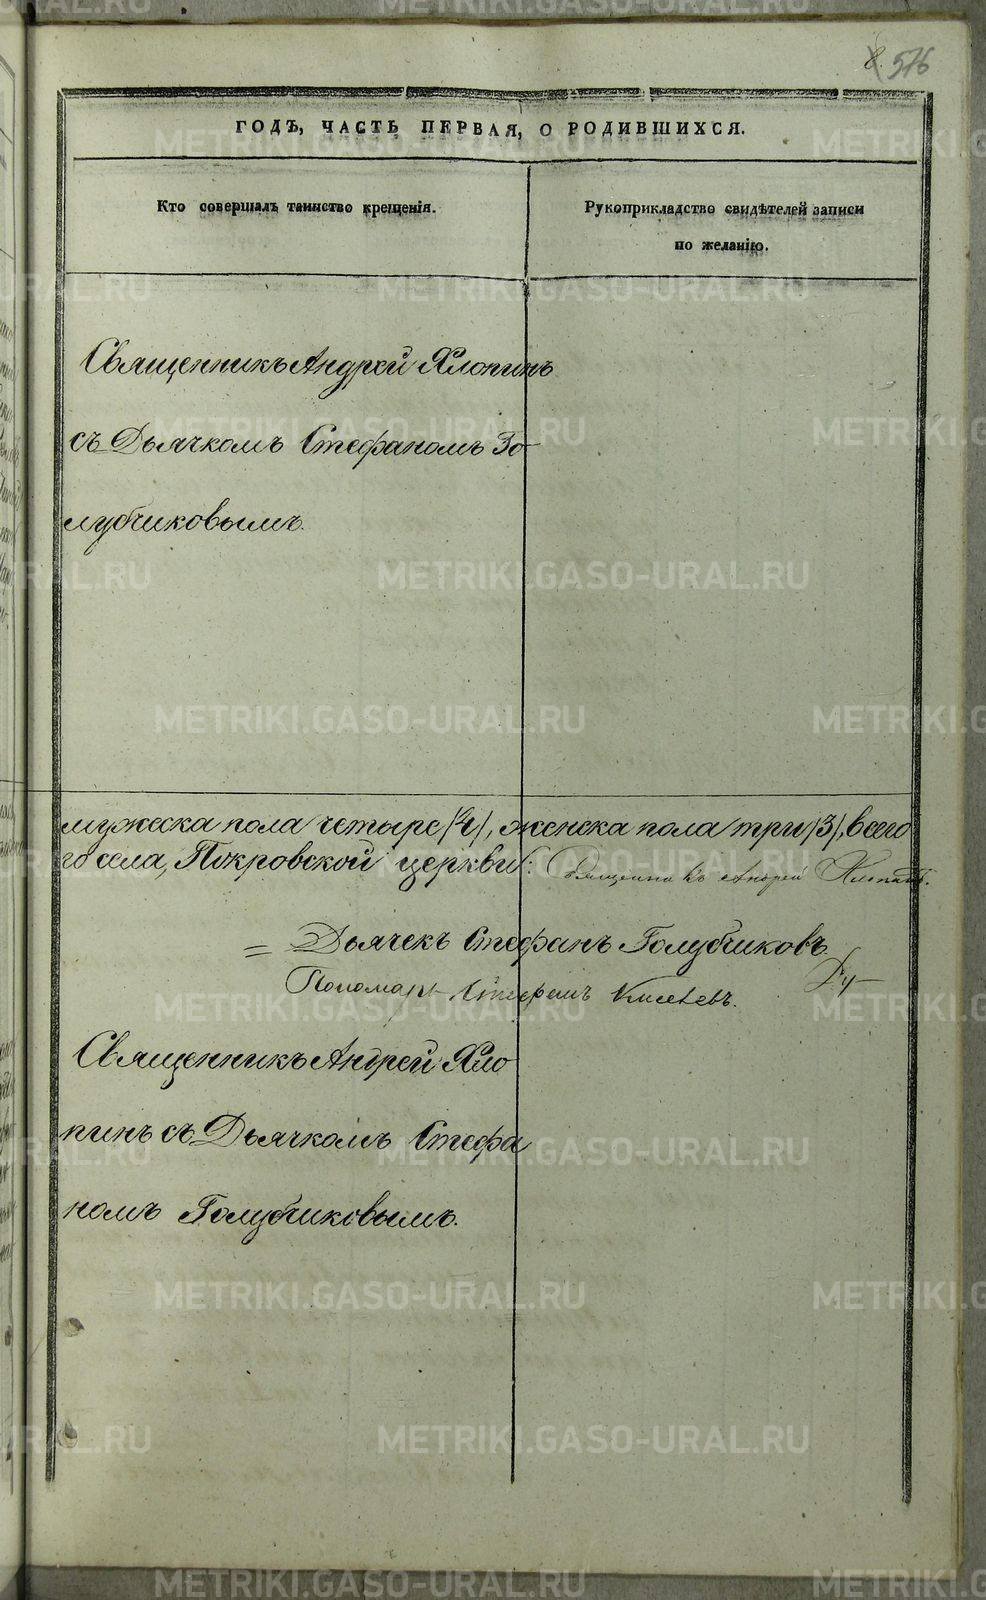 8. 576
ГОДЪ, ЧАСТЬ ПЕРВАЯ, О РОДИВШИХСЯ.
Кто совершалъ таинство крещенія.
Рукоприкладство свидѣтелей записи
по желанію.
Священникъ Андрей Хлопинъ
съ Дьячкомъ Стефаномъ Го-
лубчиковымъ.
мужеска пола четыре /4/, женска пола три /3/, всего
го села, Покровской церкви: Священникъ Андрей Хлопинъ.
= Дьячекъ Стефанъ Голубчиковъ.
Пономарь Стефанъ Киселевъ.
Священникъ Андрей Хло
пинъ съ Дьячкомъ Стефа
номъ Голубчиковымъ.
METRIKI.GASO-URAL.RU